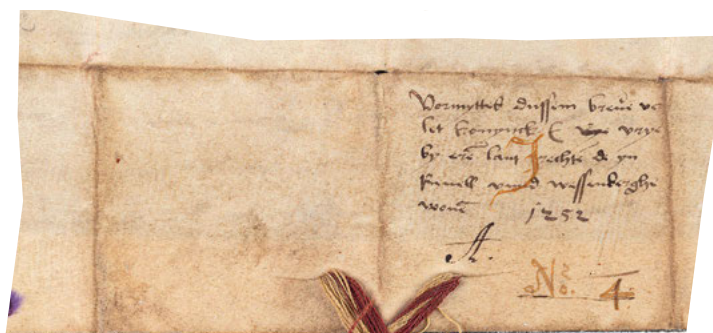 Vormyttes dussem breue ve
let konynck E vrye
by ere lant rechte de yn
Reuell vnnd wessenberghe
wonē 1252
A.
No. 4.